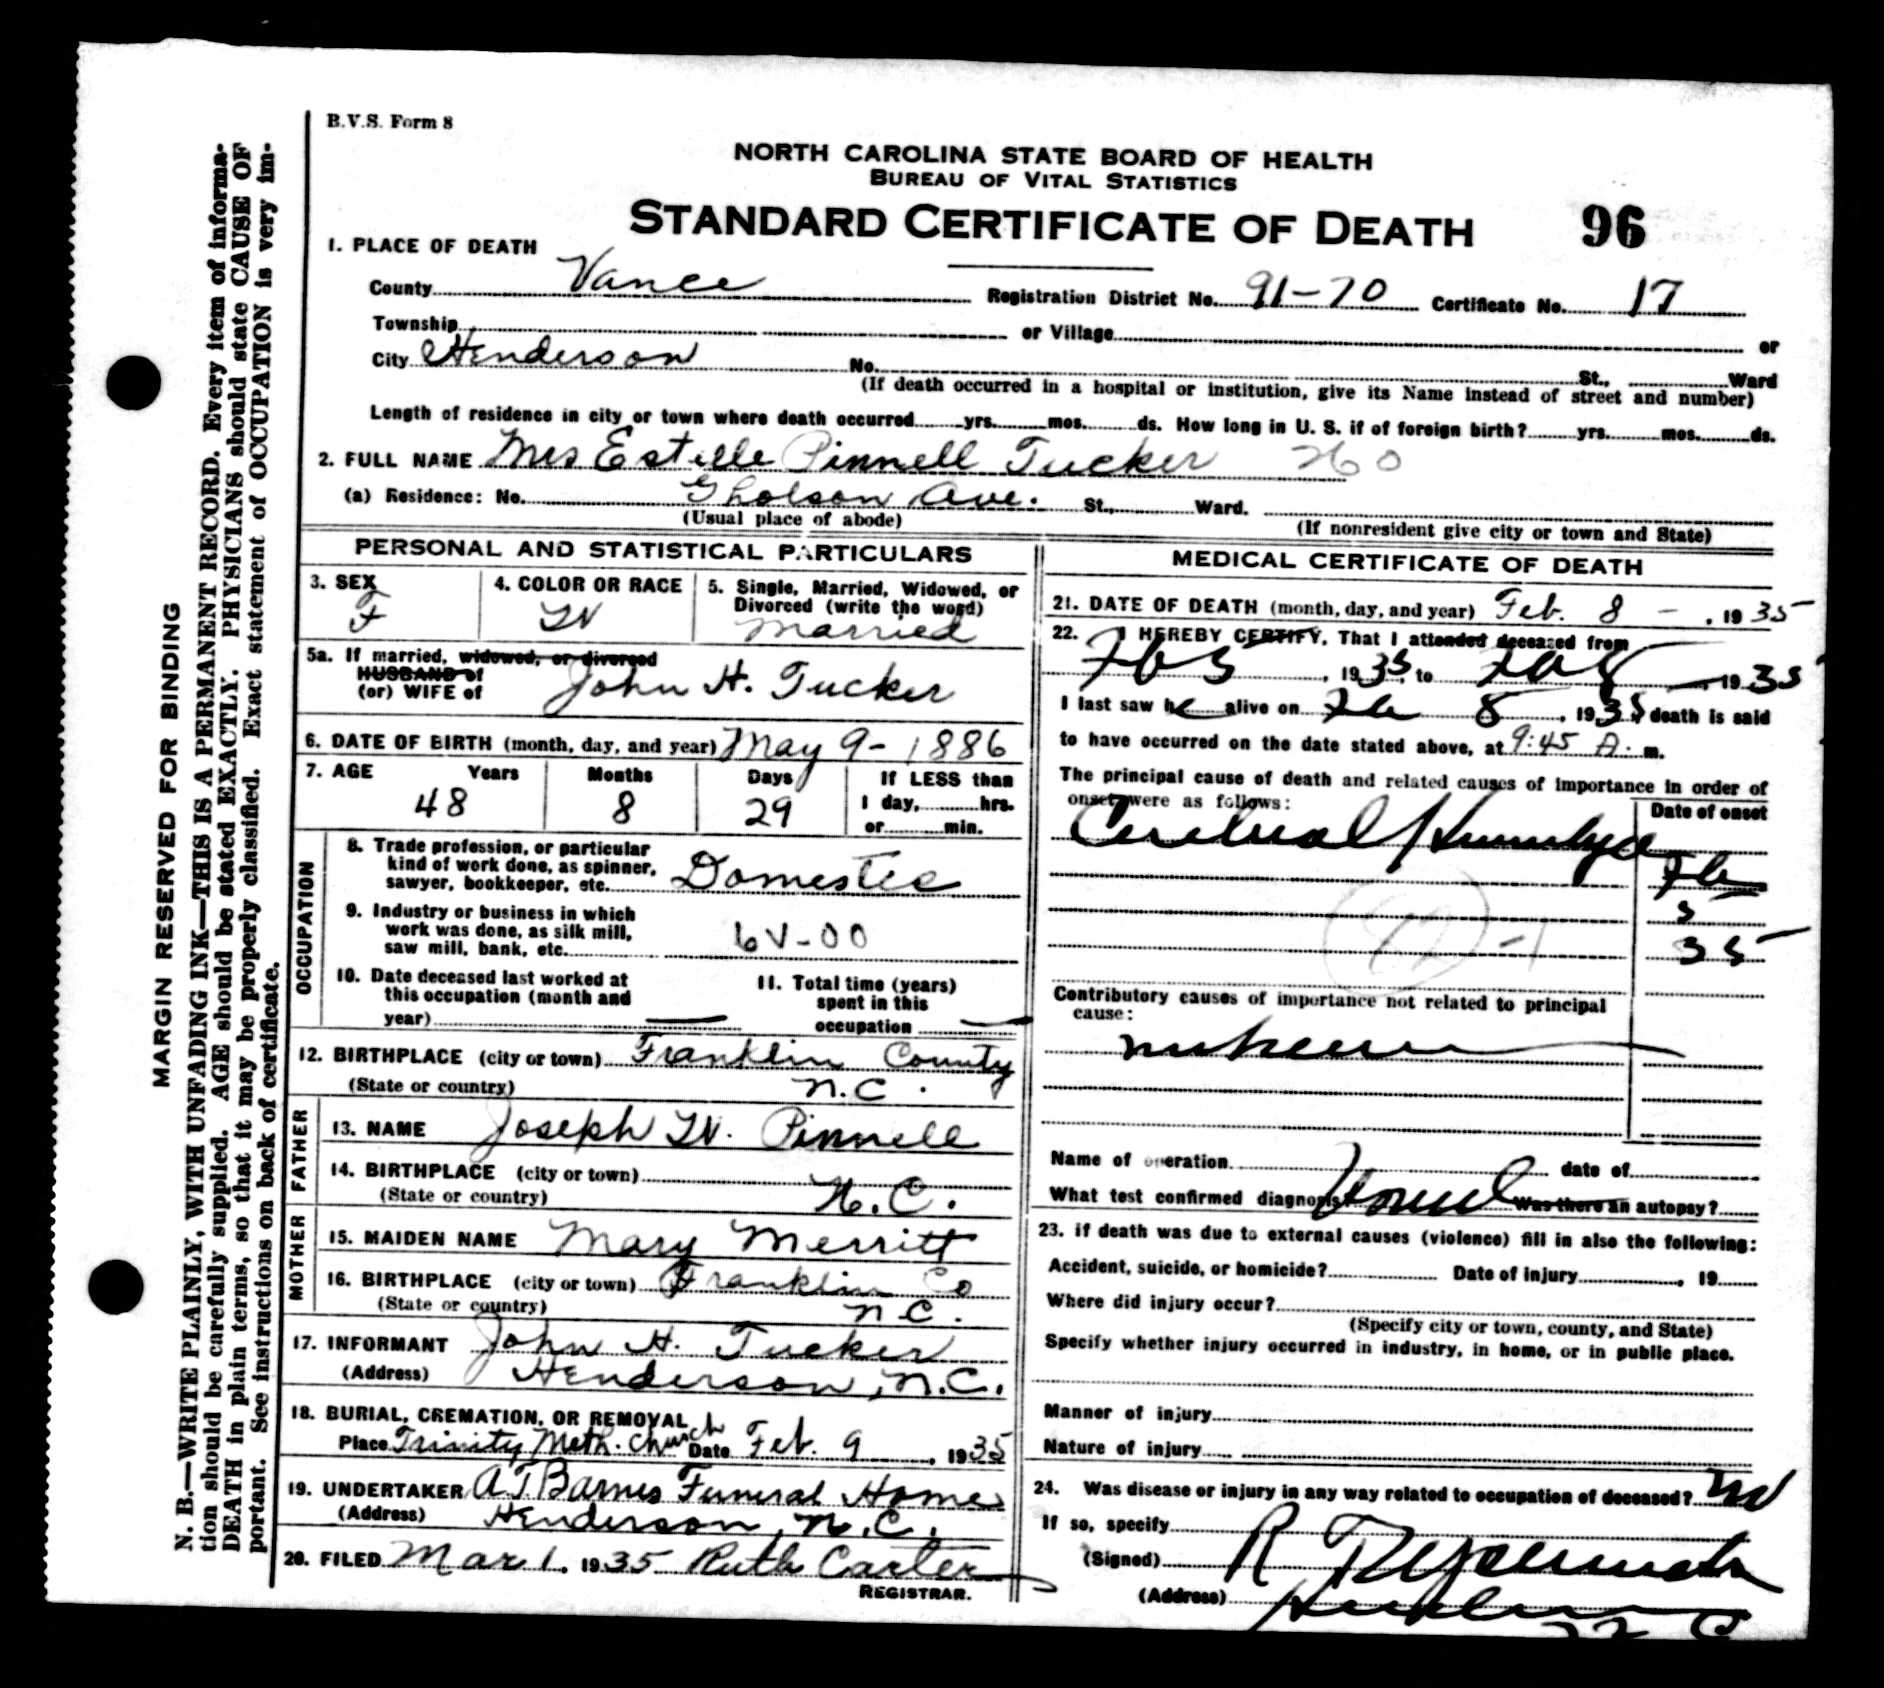 B.V.S. Form 8
NORTH CAROLINA STATE BOARD OF HEALTH
BUREAU OF VITAL STATISTICS
STANDARD CERTIFICATE OF DEATH 96
1. PLACE OF DEATH
County Vance Registration District No. 91-70 Certificate No. 17
Township or Village or
City Henderson No. St., Ward
(If death occurred in a hospital or institution, give its Name instead of street and number)
Length of residence in city or town where death occurred yrs. mos. ds. How long in U. S. if of foreign birth? yrs. mos. ds.
2. FULL NAME Mrs Estelle Pinnell Tucker 260
(a) Residence: No. Gholson Ave. St., Ward.
(Usual place of abode) (If nonresident give city or town and State)
PERSONAL AND STATISTICAL PARTICULARS
3. SEX F
4. COLOR OR RACE W
5. Single, Married, Widowed, or
Divorced (write the word)
Married
5a. If married, widowed, or divorced
HUSBAND of
(or) WIFE of John H. Tucker
6. DATE OF BIRTH (month, day, and year) May 9-1886
7. AGE Years Months Days If LESS than
48 8 29 1 day, hrs.
or min.
OCCUPATION
8. Trade profession, or particular
kind of work done, as spinner,
sawyer, bookkeeper, etc. Domestic
9. Industry or business in which
work was done, as silk mill,
saw mill, bank, etc. 6V-00
10. Date deceased last worked at
this occupation (month and
year) —
11. Total time (years)
spent in this
occupation —
12. BIRTHPLACE (city or town) Franklin County
(State or country) N.C.
FATHER
13. NAME Joseph W. Pinnell
14. BIRTHPLACE (city or town)
(State or country) N.C.
MOTHER
15. MAIDEN NAME Mary Merritt
16. BIRTHPLACE (city or town) Franklin Co
(State or country) N.C.
17. INFORMANT John H. Tucker
(Address) Henderson, N.C.
18. BURIAL, CREMATION, OR REMOVAL
Place Trinity Meth. Church Date Feb. 9, 1935
19. UNDERTAKER A T Barnes Funeral Home
(Address) Henderson, N.C.
20. FILED Mar 1, 1935 Ruth Carter
REGISTRAR.
MEDICAL CERTIFICATE OF DEATH
21. DATE OF DEATH (month, day, and year) Feb. 8 -, 1935
22. I HEREBY CERTIFY, That I attended deceased from
Feb 5, 1935, to Feb 8, 1935
I last saw h alive on Feb 8, 1935, death is said
to have occurred on the date stated above, at 9:45 A. m.
The principal cause of death and related causes of importance in order of
onset were as follows: Date of onset
Cerebral Hemorrhage Feb
5
35
Contributory causes of importance not related to principal
cause:
Name of operation date of
What test confirmed diagnosis? Was there an autopsy?
23. If death was due to external causes (violence) fill in also the following:
Accident, suicide, or homicide? Date of injury, 19
Where did injury occur?
(Specify city or town, county, and State)
Specify whether injury occurred in industry, in home, or in public place.
Manner of injury
Nature of injury
24. Was disease or injury in any way related to occupation of deceased? no
If so, specify
(Signed) R
(Address)
MARGIN RESERVED FOR BINDING
N. B.—WRITE PLAINLY, WITH UNFADING INK—THIS IS A PERMANENT RECORD. Every item of informa-
tion should be carefully supplied. AGE should be stated EXACTLY. PHYSICIANS should state CAUSE OF
DEATH in plain terms, so that it may be properly classified. Exact statement of OCCUPATION is very im-
portant. See instructions on back of certificate.